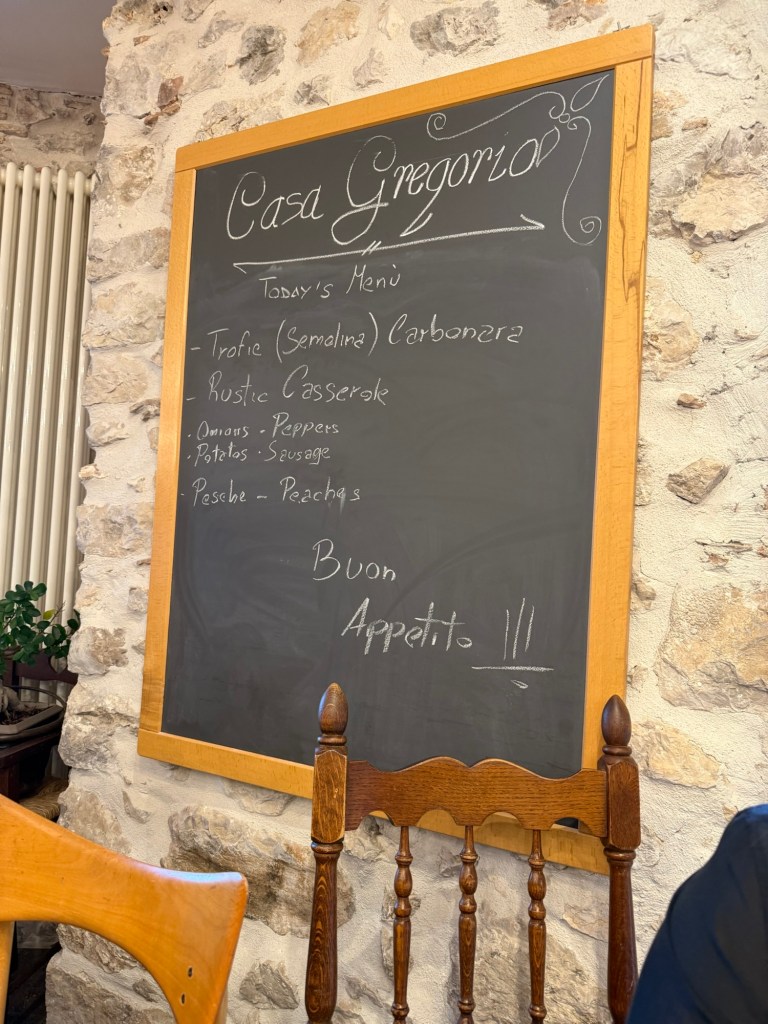 Casa Gregorio
Today's Menù
- Trofie (Semolina) Carbonara
- Rustic Casserole
· Onions · Peppers
· Potatos · Sausage
- Pesche - Peaches
Buon
Appetito !!!